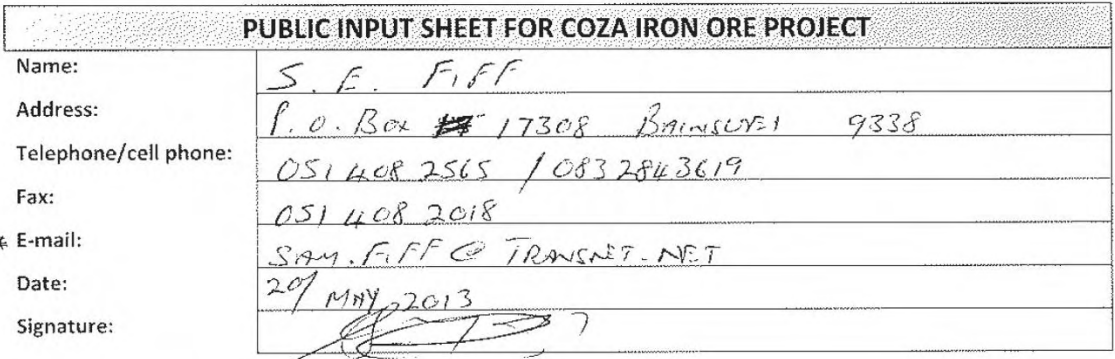 PUBLIC INPUT SHEET FOR COZA IRON ORE PROJECT
Name: S. E. FIFF
Address: P.O. Box 17308 BAINSVLEI 9338
Telephone/cell phone: 051 408 2565 / 083 2843619
Fax: 051 408 2018
E-mail: SAM.FIFF@TRANSNET.NET
Date: 20/ MAY 2013
Signature: